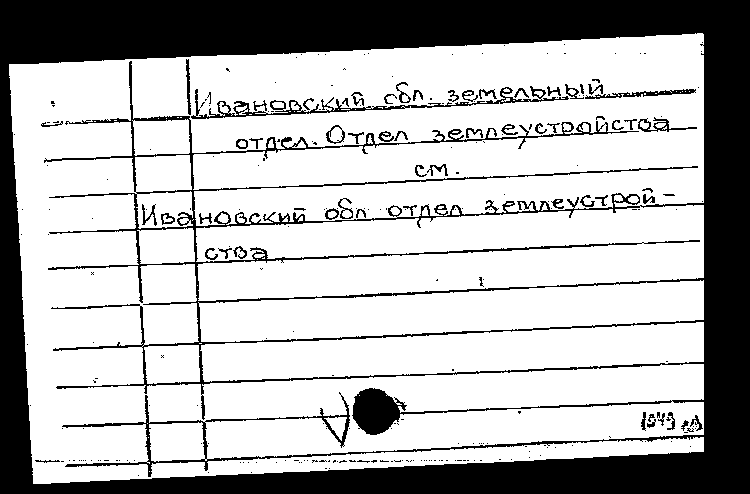 Ивановский обл. земельный
отдел. Отдел землеустройства
см.
Ивановский обл отдел землеустрой-
ства.
1949